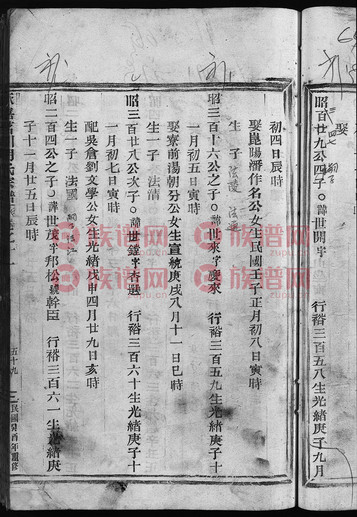 娶
昭百廿九公四子○諱世開字　行裕三百五八生光緒庚子年九月
初四日辰時
娶崑陽潘作名公女生民國壬子正月初八日寅時
生一子　法
昭三百十六公之子○諱世來字慶來　行裕三百五九生光緒庚子十
一月初七日寅時
娶寮前湯朝分公女生宣統庚戌八月十一日巳時
生一子　法清
昭三百廿八公次子○諱世鏗字杏選　行裕三百六十生光緒庚子十
一月初七日寅時
配吳倉劉文學公女生光緒戊申四月廿九日亥時
生一子　法國
昭二百四公之子○諱世茂字邦松號幹臣　行裕三百六一生光緒庚
子十二月廿五日辰時
五十九
民國癸酉年重修
族譜网